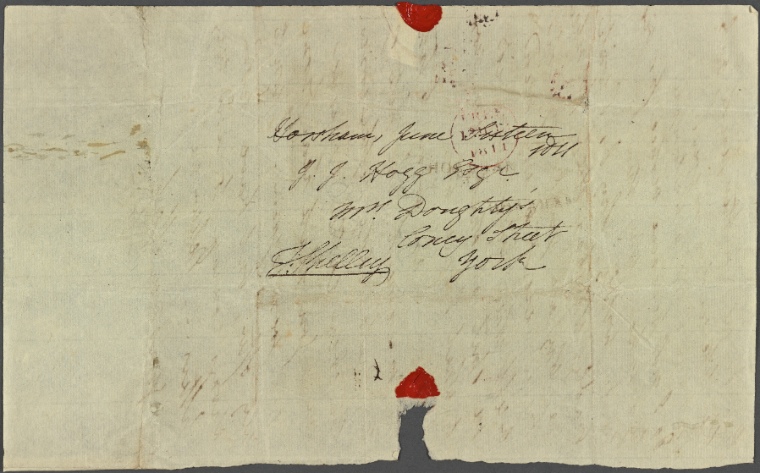 Horsham, June Sixteen
1811
T. J. Hogg Esqr.
Mrs. Doughty's
Coney Street
York
T. Shelley